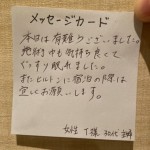 メッセージカード
本日は有難うございました。
施術中も気持ち良くて
ぐっすり眠れました。
またヒルトンに宿泊の際は
宜しくお願いします。
女性 T様 30代 主婦